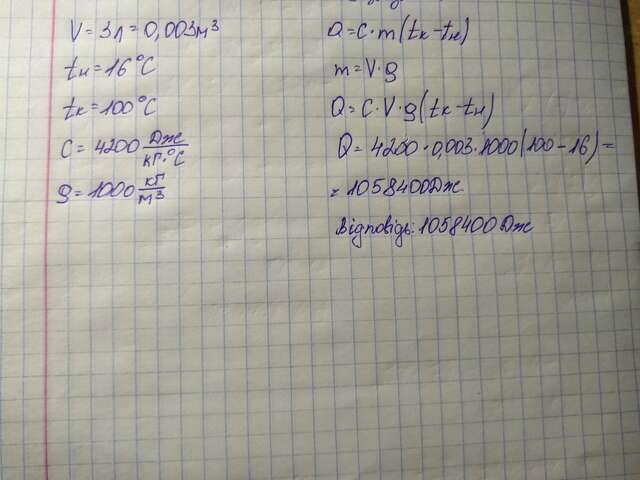 V = 3л = 0,003м³
tн = 16°C
tк = 100°C
C = 4200 Дж/кг·°C
ρ = 1000 кг/м³
Q = C·m(tк-tн)
m = V·ρ
Q = C·V·ρ(tк-tн)
Q = 4200·0,003·1000(100-16) =
= 1058400Дж.
Відповідь: 1058400 Дж